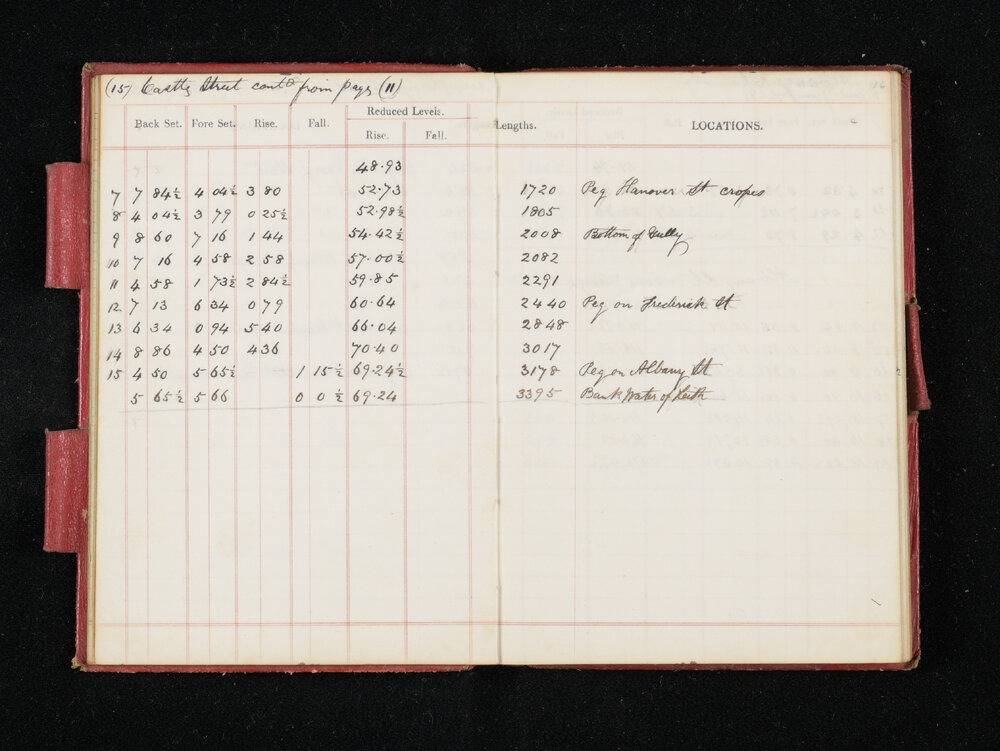 (15) Castle Street contd from page (11)
Back Set. Fore Set. Rise. Fall. Reduced Levels. Rise. Fall. Lengths. LOCATIONS.
48.93
7 7 84½ 4 04½ 3 80 52.73 1720 Peg Hanover St cropes
8 4 04½ 3 79 0 25½ 52.98½ 1805
9 8 60 7 16 1 44 54.42½ 2008 Bottom of Gully
10 7 16 4 58 2 58 57.00½ 2082
11 4 58 1 73½ 2 84½ 59.85 2291
12 7 13 6 34 0 79 60.64 2440 Peg on Frederick St
13 6 34 0 94 5 40 66.04 2848
14 8 86 4 50 4 36 70.40 3017
15 4 50 5 65½ 1 15½ 69.24½ 3178 Peg on Albany St
5 65½ 5 66 0 0½ 69.24 3395 Bank Water of Leith